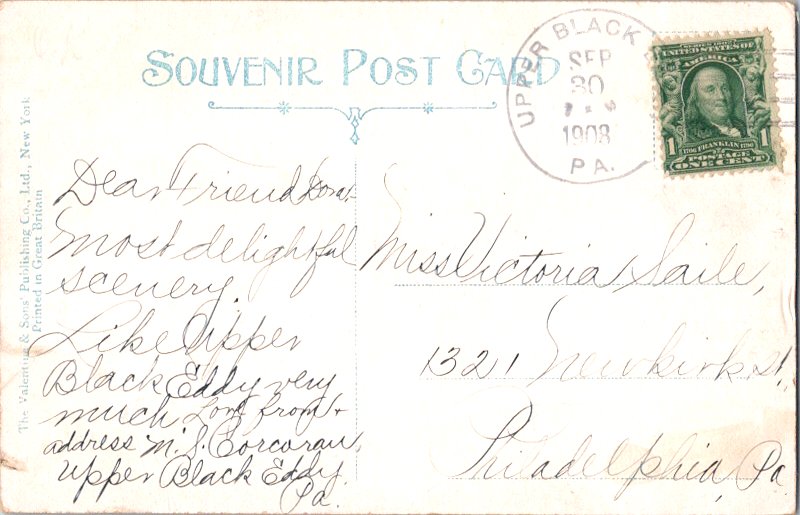 SOUVENIR POST CARD
UPPER BLACK
SEP
30
1908
PA.
SERIES 1902
UNITED STATES OF
AMERICA
1 1
1706 FRANKLIN 1790
POSTAGE
ONE CENT
The Valentine & Sons' Publishing Co., Ltd., New York
Printed in Great Britain
Dear Friend
most delightful
scenery.
Like Upper
Black Eddy very
much Love from +
address M. J. Corcoran,
Upper Black Eddy.
Pa.
Miss Victoria Saile,
1321 Newkirk St.
Philadelphia, Pa